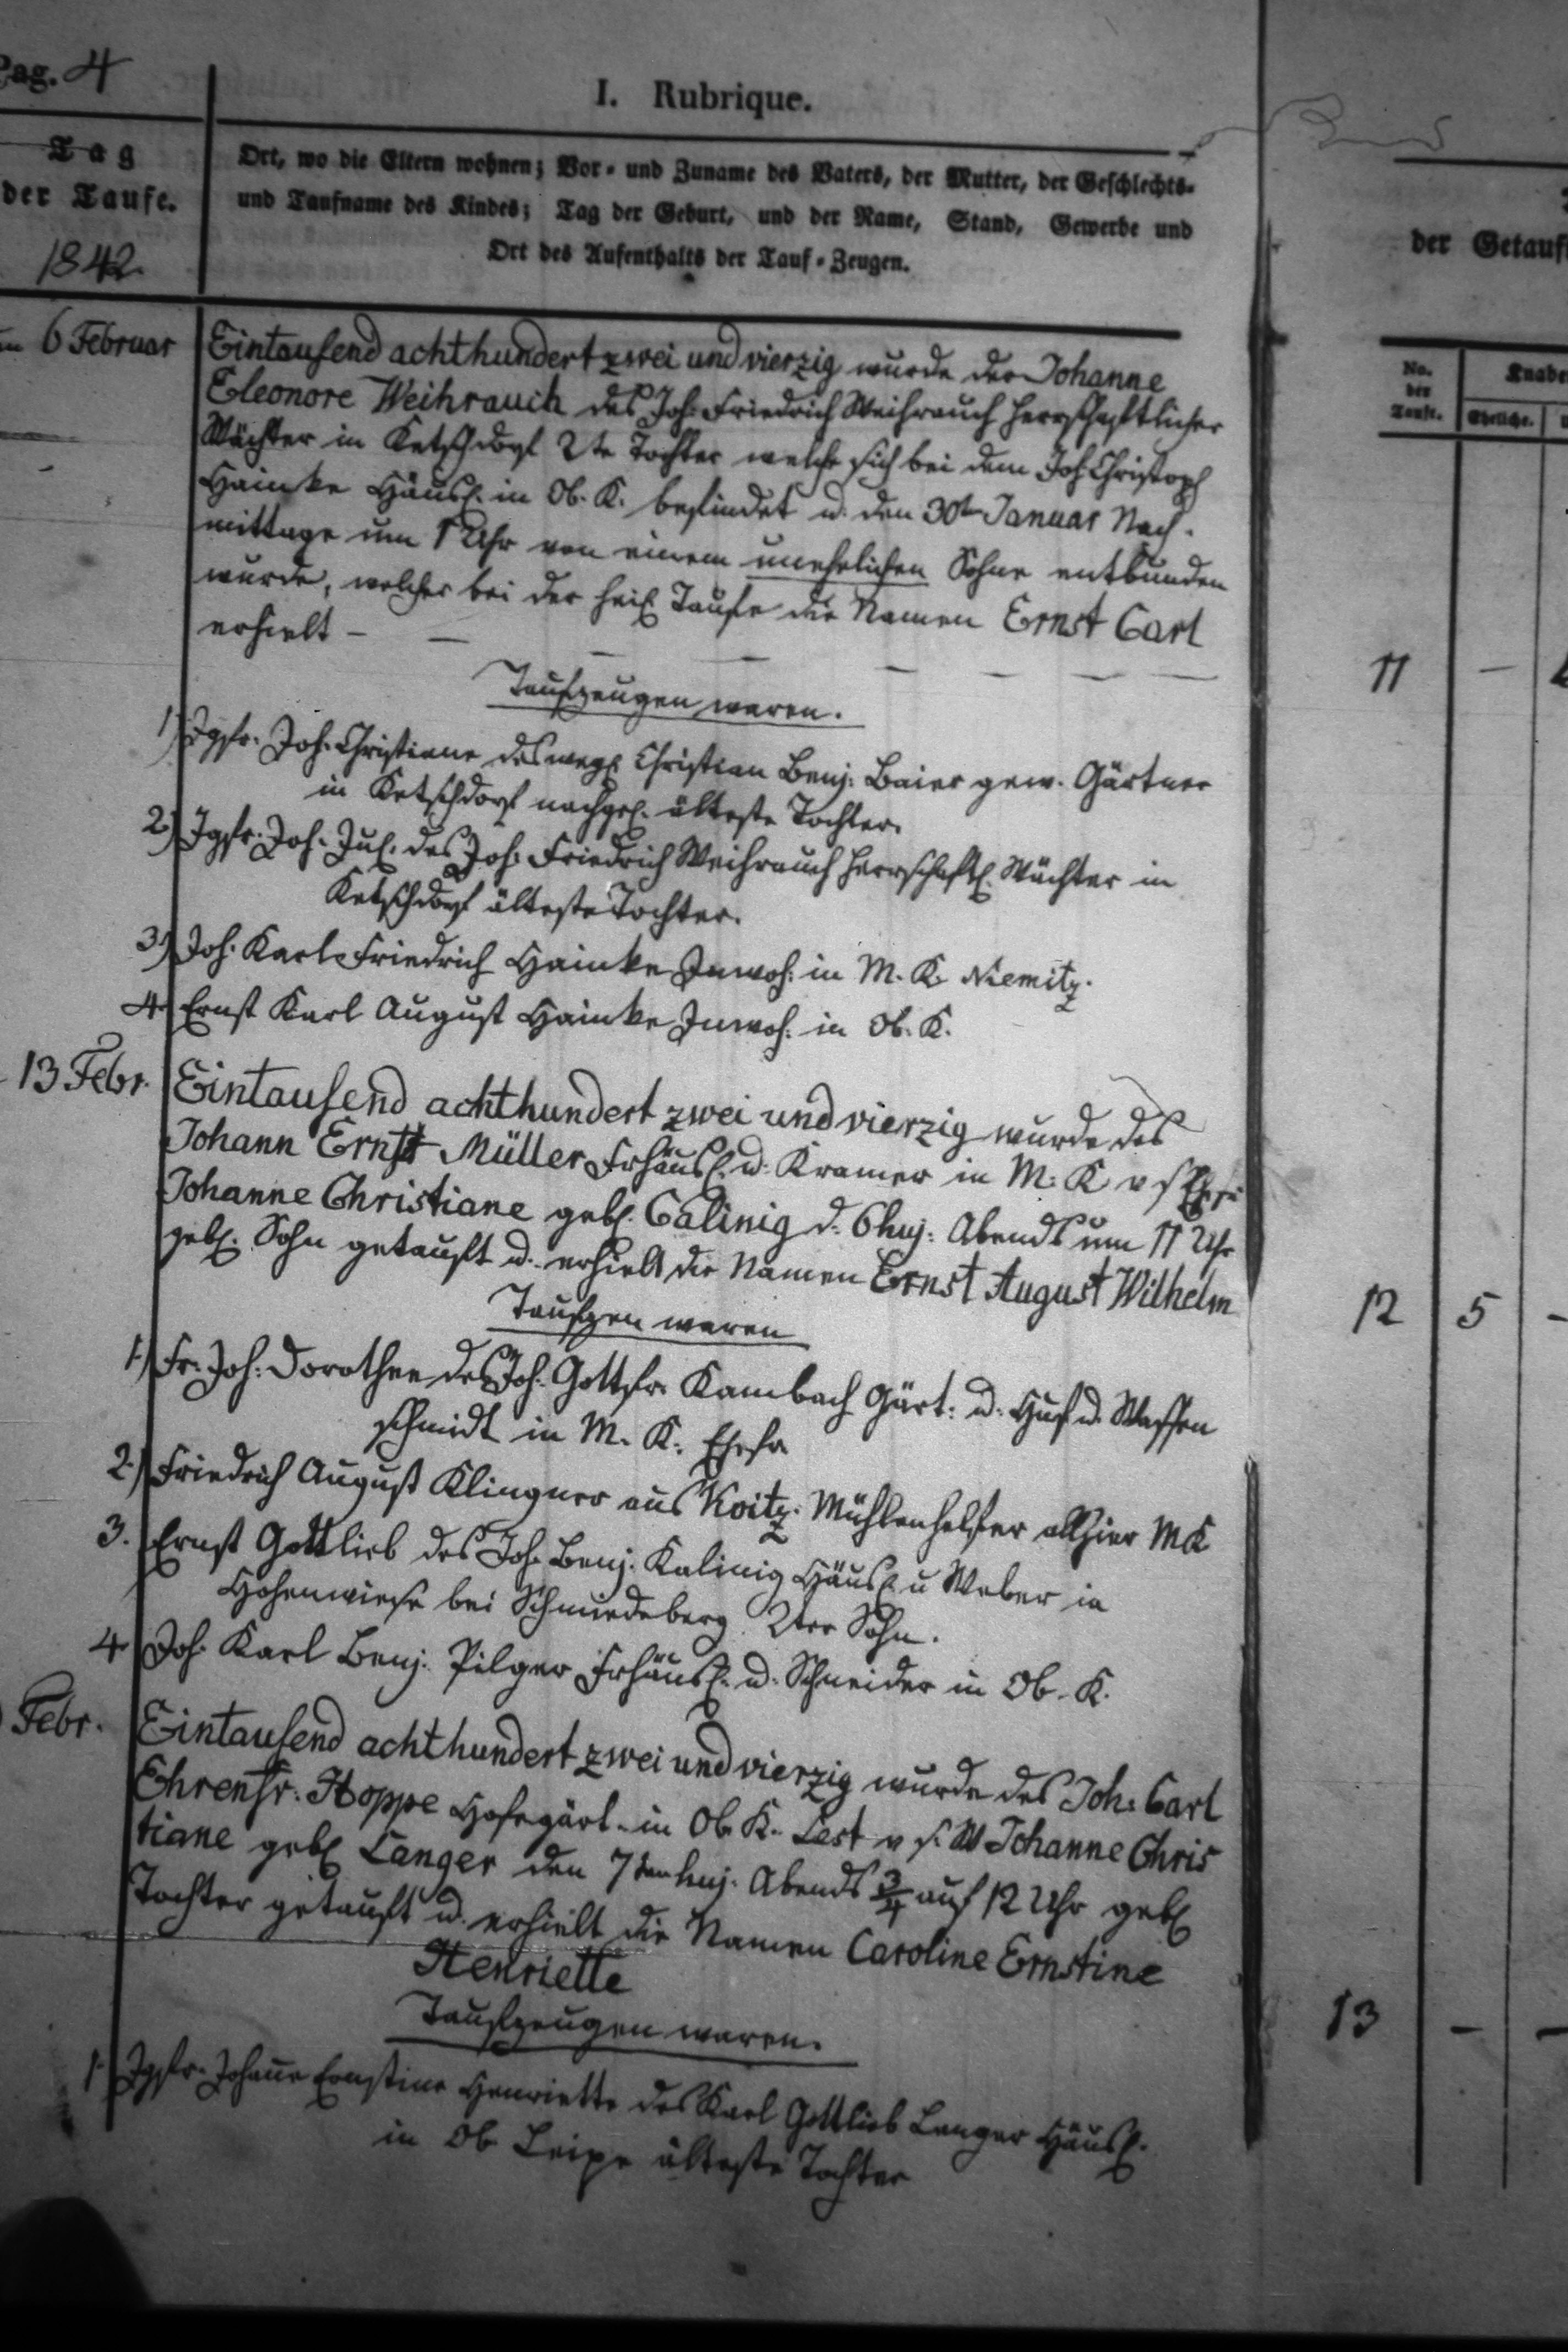 Pag. 4
I. Rubrique.
Tag
der Taufe.
1842.
Ort, wo die Eltern wohnen; Vor- und Zuname des Vaters, der Mutter, der Geschlechts-
und Taufname des Kindes; Tag der Geburt, und der Name, Stand, Gewerbe und
Ort des Aufenthalts der Tauf-Zeugen.
6 Februar
Eintausend achthundert zwei und vierzig wurde der Johanne
Eleonore Weihrauch des Joh. Friedrich Weihrauch herrschaftlicher
Wächter in Ketschdorf 2te Tochter welche sich bei dem Joh. Christoph
Hainke Häusl. in Ob. K. befindet u. den 30t Januar Nach-
mittage um 1 Uhr von einem unehelichen Sohne entbunden
wurde, welcher bei der heil Taufe die Namen Ernst Carl
erhielt —
Taufzeugen waren.
1) Jgfr. Joh. Christiane des weyl Christian Benj. Baier gew. Gärtner
in Ketschdorf nachgel. älteste Tochter.
2.) Jgfr. Joh. Jul. des Joh. Friedrich Weihrauch herrschaftl. Wächter in
Ketschdorf älteste Tochter.
3.) Joh. Karl Friedrich Hainke Inwoh. in M. K. Niemitz.
4. Ernst Karl August Hainke Inwoh. in Ob. K.
13 Febr.
Eintausend achthundert zwei und vierzig wurde des
Johann Ernst Müller Frhäusl. u. Kramer in M. K v s Ehefr
Johanne Christiane gebl. Calinig d. 6 huj. Abends um 11 Uhr
gebl. Sohn getauft u. erhielt die Namen Ernst August Wilhelm
Taufzen waren
1.) Fr. Joh. Dorothee des Joh. Gottfr. Kambach Gärt. u. Huf u. Waffen
schmidt in M. K. Ehefr
2.) Friedrich August Klingner aus Koitz. Mühlenhelfer allhier M K
3. Ernst Gottlieb des Joh. Benj. Kalinig Häusl. u Weber in
Hohenwiese bei Schmiedeberg 2ter Sohn.
4 Joh. Karl Benj. Pilger Frhäusl. u. Schneider in Ob. K.
Febr.
Eintausend achthundert zwei und vierzig wurde des Joh. Carl
Ehrenfr. Hoppe Hofegärt. in Ob. K. Lest v s. W Johanne Chris
tiane gebl Langer den 7ten huj. Abends 3/4 auf 12 Uhr gebl
Tochter getauft u. erhielt die Namen Caroline Ernstine
Henriette
Taufzeugen waren.
1. Jgfr. Johane Ernstine Henriette des Karl Gottlieb Langer Häusl.
in Ob Leipe älteste Tochter
der Getauf
No.
der
Taufe.
Knabe
Eheliche.
11 —
12 5 -
13 — —